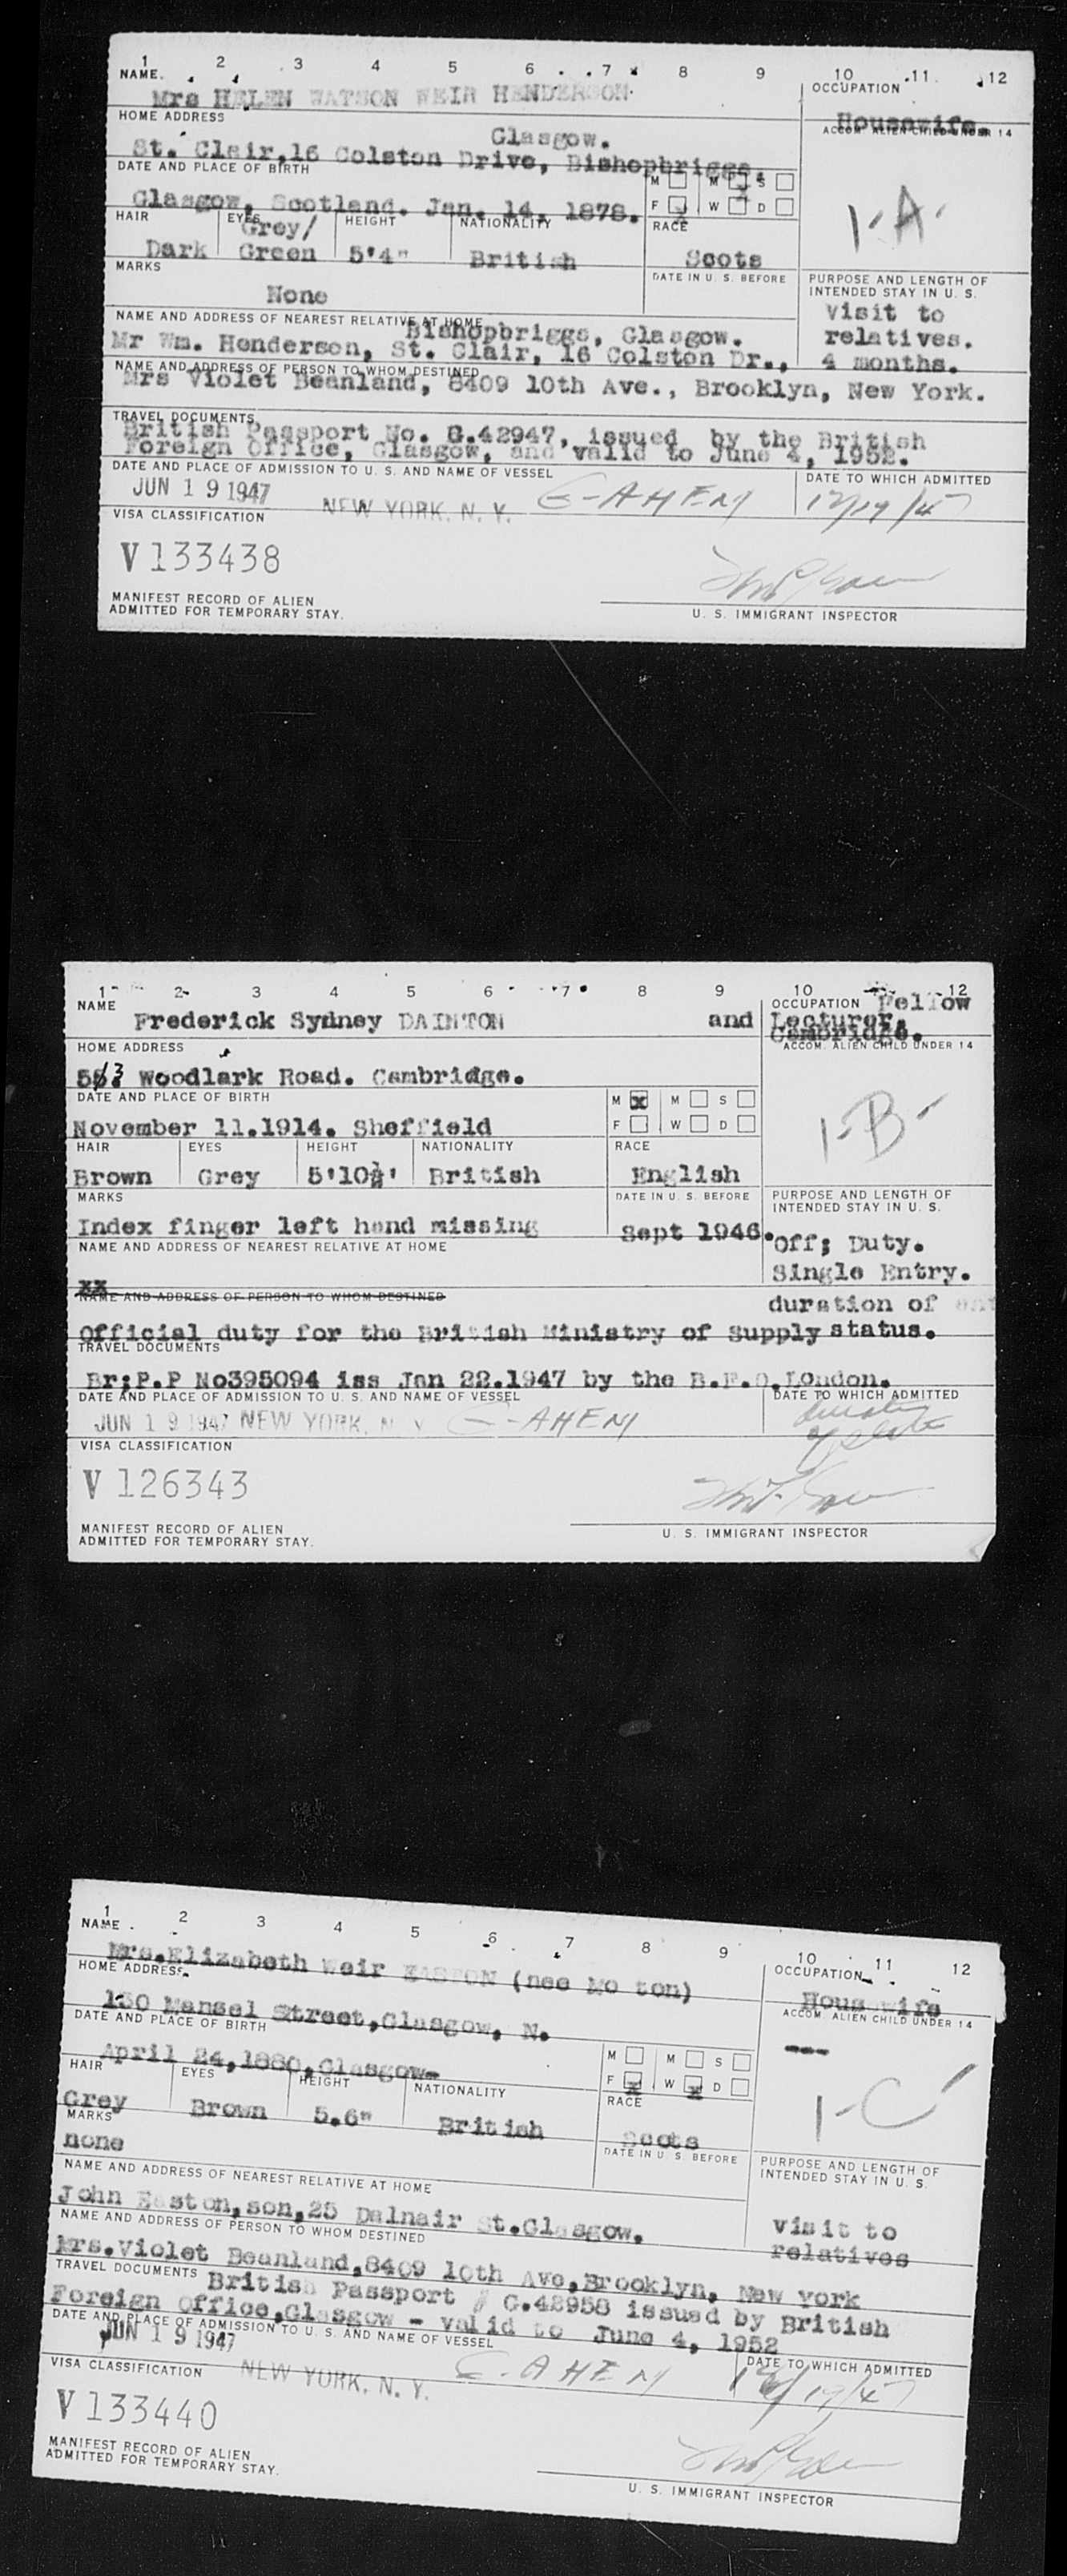 1 2 3 4 5 6 7 8 9 10 11 12
NAME. OCCUPATION
Mrs HELEN WATSON WEIR HENDERSON.
Housewife.
HOME ADDRESS ACCOM. ALIEN CHILD UNDER 14
Glasgow.
St. Clair,16 Colston Drive, Bishopbriggs.
DATE AND PLACE OF BIRTH M M S
Glasgow, Scotland. Jan. 14, 1878. F W D
1-A-
HAIR EYES HEIGHT NATIONALITY RACE
Grey/
Dark Green 5'4" British Scots
MARKS DATE IN U. S. BEFORE PURPOSE AND LENGTH OF
INTENDED STAY IN U. S.
None visit to
NAME AND ADDRESS OF NEAREST RELATIVE AT HOME
Bishopbriggs, Glasgow. relatives.
Mr Wm. Henderson, St. Clair, 16 Colston Dr., 4 months.
NAME AND ADDRESS OF PERSON TO WHOM DESTINED
Mrs Violet Beanland, 8409 10th Ave., Brooklyn, New York.
TRAVEL DOCUMENTS
British Passport No. G.42947, issued by the British
Foreign Office, Glasgow, and valid to June 4, 1952.
DATE AND PLACE OF ADMISSION TO U. S. AND NAME OF VESSEL DATE TO WHICH ADMITTED
JUN 19 1947 NEW YORK, N. Y. G-AHEM 12/19/47
VISA CLASSIFICATION
V 133438
MANIFEST RECORD OF ALIEN
ADMITTED FOR TEMPORARY STAY.
U. S. IMMIGRANT INSPECTOR
1 2 3 4 5 6 7 8 9 10 12
NAME OCCUPATION Fellow
Frederick Sydney DAINTON and Lecturer.
Cambridge.
HOME ADDRESS ACCOM. ALIEN CHILD UNDER 14
Woodlark Road. Cambridge.
DATE AND PLACE OF BIRTH M x M S
November 11.1914. Sheffield F W D
1-B-
HAIR EYES HEIGHT NATIONALITY RACE
Brown Grey 5'10½' British English
MARKS DATE IN U. S. BEFORE PURPOSE AND LENGTH OF
INTENDED STAY IN U. S.
Index finger left hand missing Sept 1946. Off; Duty.
NAME AND ADDRESS OF NEAREST RELATIVE AT HOME
Single Entry.
xx
NAME AND ADDRESS OF PERSON TO WHOM DESTINED duration of
Official duty for the British Ministry of Supply status.
TRAVEL DOCUMENTS
Br;P.P No395094 iss Jan 22.1947 by the B.F.O.London.
DATE AND PLACE OF ADMISSION TO U. S. AND NAME OF VESSEL DATE TO WHICH ADMITTED
JUN 19 1947 NEW YORK, N. Y. G-AHEM duration
of status
VISA CLASSIFICATION
V 126343
MANIFEST RECORD OF ALIEN
ADMITTED FOR TEMPORARY STAY.
U. S. IMMIGRANT INSPECTOR
1 2 3 4 5 6 7 8 9 10 11 12
NAME OCCUPATION
Mrs.Elizabeth Weir EASTON (nee Mo ton) Housewife
HOME ADDRESS ACCOM. ALIEN CHILD UNDER 14
130 Mansel Street,Glasgow, N. ---
DATE AND PLACE OF BIRTH M M S
April 24,1880,Glasgow- F x W x D
1-C
HAIR EYES HEIGHT NATIONALITY RACE
Grey Brown 5.6" British Scots
MARKS DATE IN U. S. BEFORE PURPOSE AND LENGTH OF
INTENDED STAY IN U. S.
none
NAME AND ADDRESS OF NEAREST RELATIVE AT HOME
John Easton,son,25 Dalnair St.Glasgow. visit to
relatives
NAME AND ADDRESS OF PERSON TO WHOM DESTINED
Mrs.Violet Beanland,8409 10th Ave,Brooklyn, New York
TRAVEL DOCUMENTS British Passport # C.42958 issued by British
Foreign Office,Glasgow - valid to June 4, 1952
DATE AND PLACE OF ADMISSION TO U. S. AND NAME OF VESSEL DATE TO WHICH ADMITTED
JUN 19 1947 NEW YORK, N. Y. G-AHEM 12/19/47
VISA CLASSIFICATION
V 133440
MANIFEST RECORD OF ALIEN
ADMITTED FOR TEMPORARY STAY.
U. S. IMMIGRANT INSPECTOR